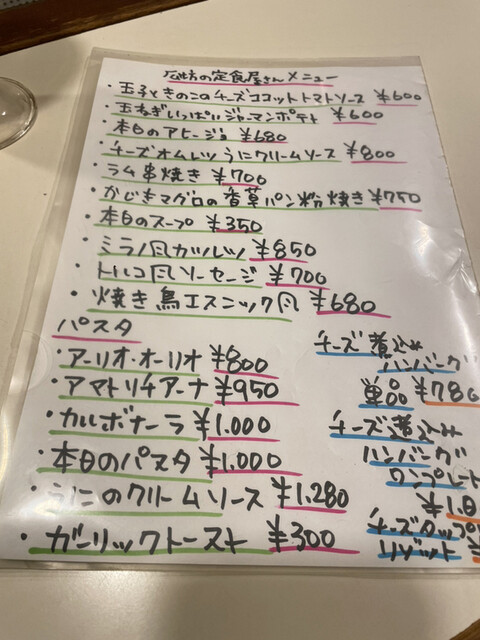 の定食屋さんメニュー
・玉子ときのこのチーズココットトマトソース ¥600
・玉ねぎいっぱいジャーマンポテト ¥600
・本日のアヒージョ ¥680
・チーズオムレツうにクリームソース ¥800
・ラム串焼き ¥700
・かじきマグロの香草パン粉焼き ¥750
・本日のスープ ¥350
・ミラノ風カツレツ ¥850
・トルコ風ソーセージ ¥700
・焼き鳥エスニック風 ¥680
パスタ
・アーリオ・オーリオ ¥800
・アマトリチアーナ ¥950
・カルボナーラ ¥1.000
・本日のパスタ ¥1.000
・うにのクリームソース ¥1.280
・ガーリックトースト ¥300
チーズ煮込み
ハンバーグ
単品 ¥780
チーズ煮込み
ハンバーグ
ワンプレート
チーズタップ
リゾット